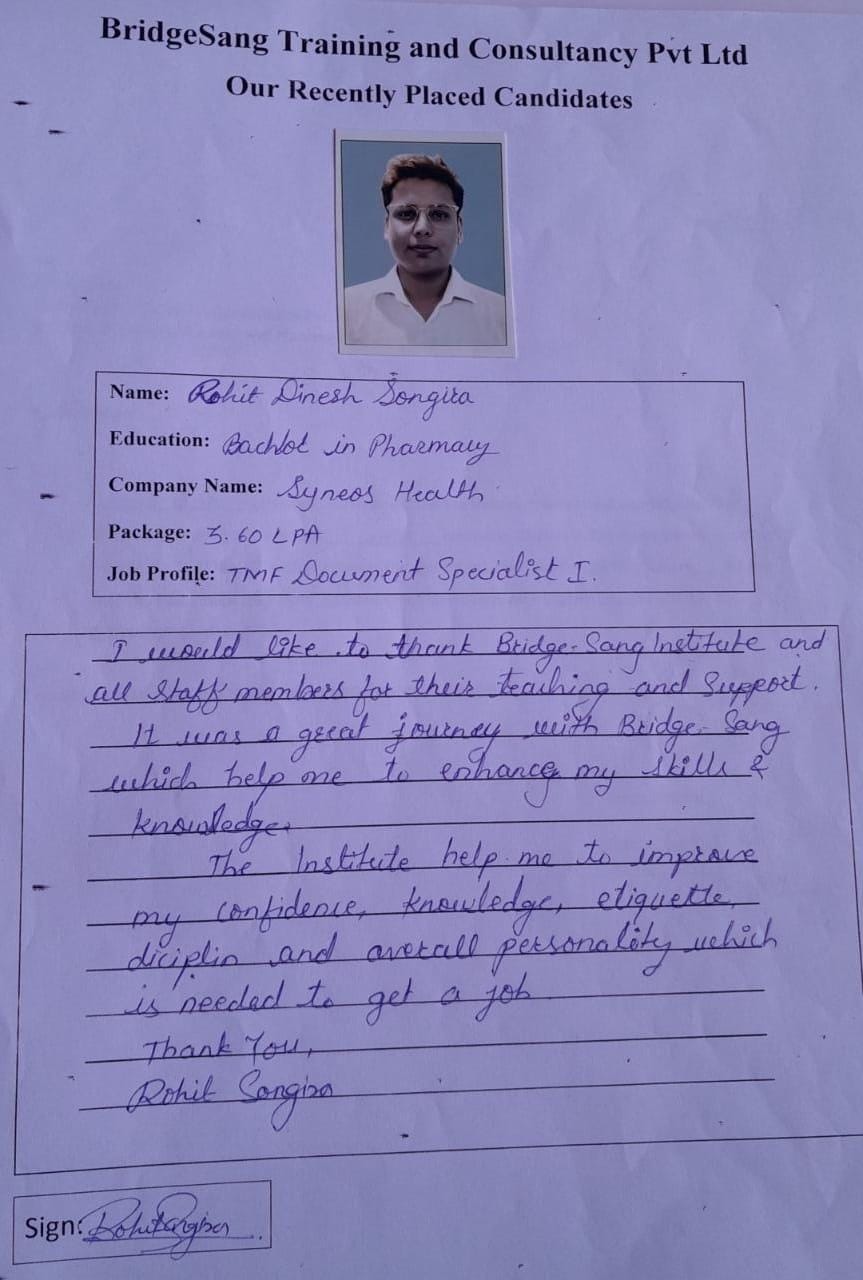 BridgeSang Training and Consultancy Pvt Ltd
Our Recently Placed Candidates
Name: Rohit Dinesh Songira
Education: Bachlor in Pharmacy
Company Name: Syneos Health
Package: 3.60 LPA
Job Profile: TMF Document Specialist I.
I would like to thank Bridge-Sang Institute and
all staff members for their teaching and Support.
It was a great journey with Bridge-Sang
which help me to enhance my skills &
knowledge.
The Institute help me to improve
my confidence, knowledge, etiquette,
diciplin and overall personality which
is needed to get a job
Thank You,
Rohit Songira
Sign: Rohit Songira